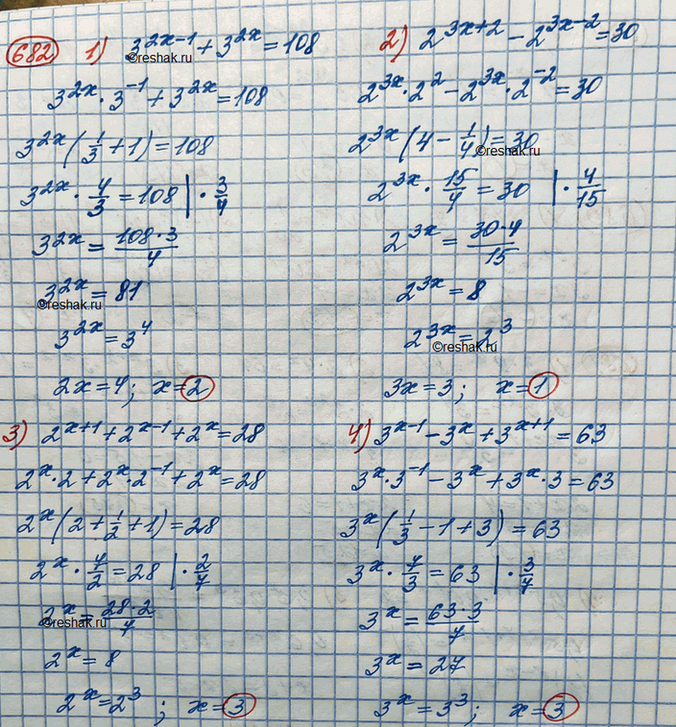 682 1) 3^(2x-1) + 3^(2x) = 108
©reshak.ru
3^(2x) · 3^(-1) + 3^(2x) = 108
3^(2x) (1/3 + 1) = 108
3^(2x) · 4/3 = 108 | · 3/4
3^(2x) = (108·3)/4
3^(2x) = 81
©reshak.ru
3^(2x) = 3^4
2x = 4; x = 2
2) 2^(3x+2) - 2^(3x-2) = 30
2^(3x) · 2^2 - 2^(3x) · 2^(-2) = 30
2^(3x) (4 - 1/4) = 30
©reshak.ru
2^(3x) · 15/4 = 30 | · 4/15
2^(3x) = (30·4)/15
2^(3x) = 8
2^(3x) = 2^3
©reshak.ru
3x = 3; x = 1
3) 2^(x+1) + 2^(x-1) + 2^x = 28
2^x · 2 + 2^x · 2^(-1) + 2^x = 28
2^x (2 + 1/2 + 1) = 28
2^x · 7/2 = 28 | · 2/7
2^x = (28·2)/7
©reshak.ru
2^x = 8
2^x = 2^3; x = 3
4) 3^(x-1) - 3^x + 3^(x+1) = 63
3^x · 3^(-1) - 3^x + 3^x · 3 = 63
3^x (1/3 - 1 + 3) = 63
3^x · 7/3 = 63 | · 3/7
3^x = (63·3)/7
3^x = 27
3^x = 3^3; x = 3